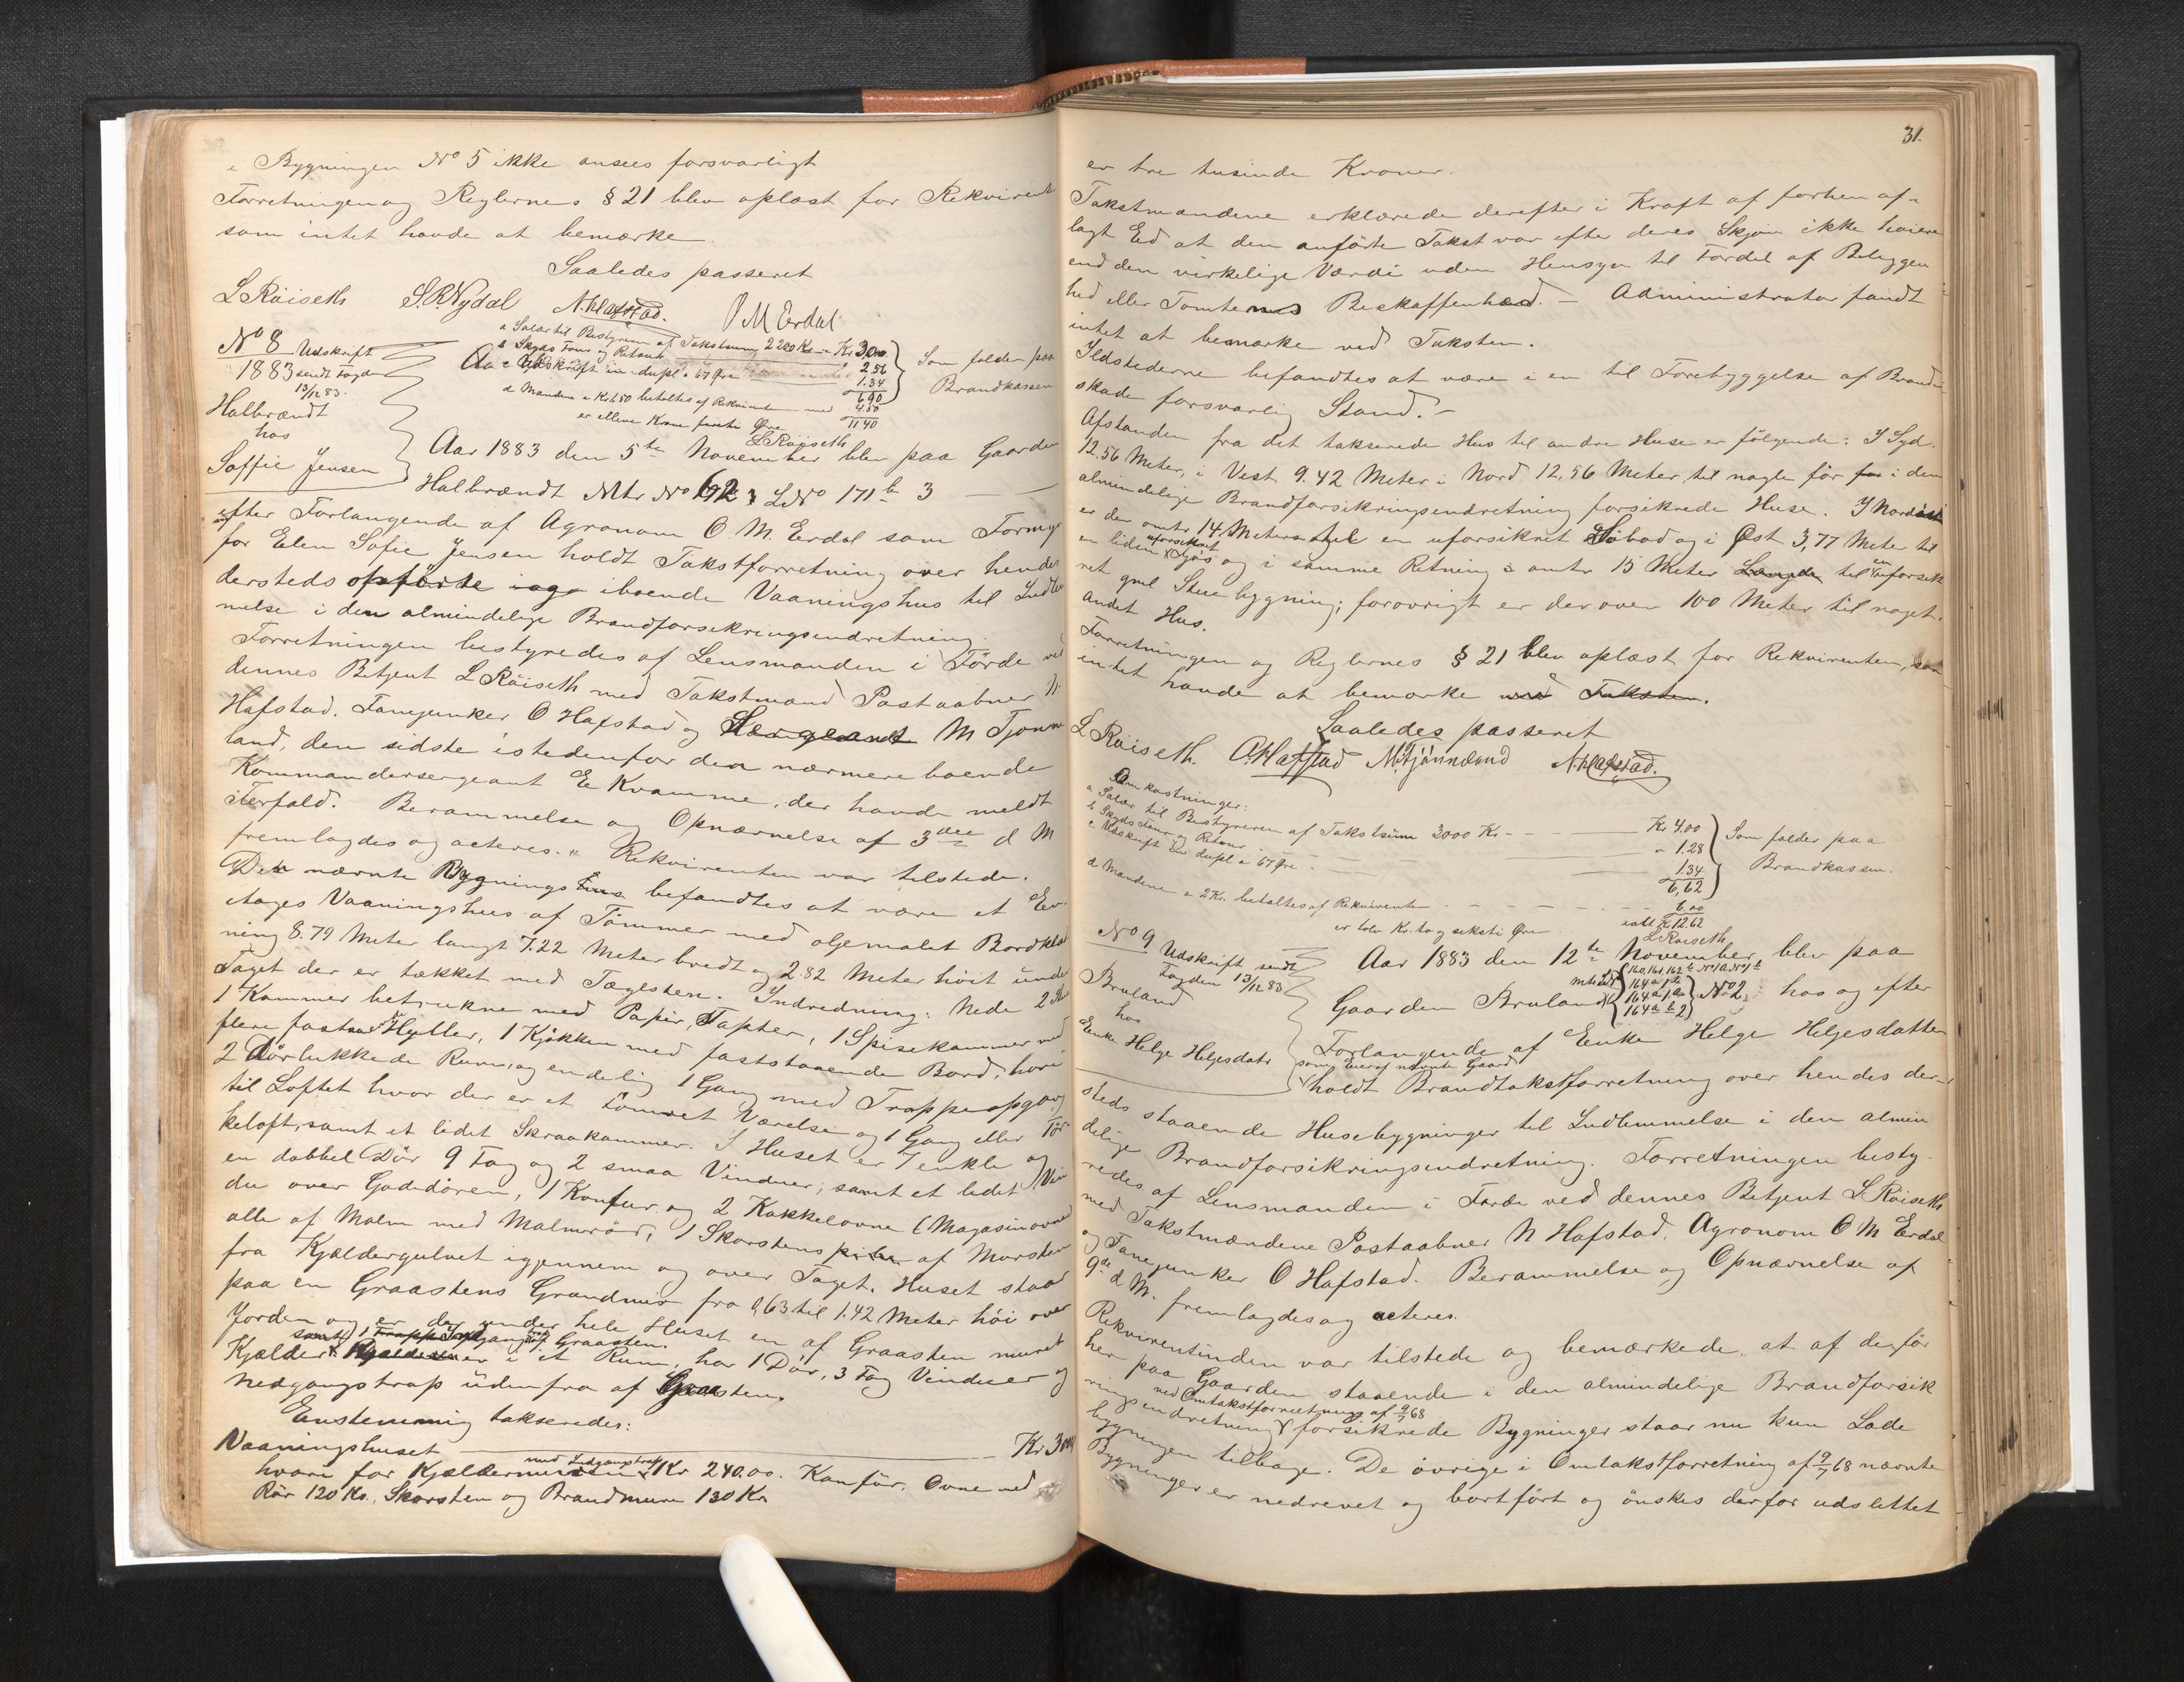 i Bygningen No 5 ikke ansees forsvarligt
Forretningen og Reglernes § 21 blev oplæst for Rekvirent
som intet havde at bemærke.
Saaledes passeret
L Röiseth S.R. Nydal N. Hafstad. O M Erdal
a Salær til Bestyreren af Takstsum 2200 Kr - Kr 3.00
b Skyds Frem og Retour 2.56
c Udskrift in dupl a 67 Øre 1.34
6.90
Som falder paa
Brandkassen
d Mændene a Kr 1.50 betaltes af Rekvirenten med 4.50
er elleve Kroner førti Øre 11 40
L Röiseth
No 8 Udskrift
1883 sendt Fogden
13/12 83.
Halbrændt
hos
Soffie Jensen
Aar 1883 den 5te November blev paa Gaarden
Halbrændt Mtr No 62 LNo 171 b 3
efter Forlangende af Agronom O. M. Erdal som Formyn
for Elen Sofie Jensen holdt Takstforretning over hendes
dersteds opførte iboende Vaaningshus til Indlem
melse i den almindelige Brandforsikringsindretning.
Forretningen bestyredes af Lensmanden i Förde ved
dennes Betjent L Röiseth med Takstmænd Postaabner N
Hafstad. Fanejunker O Hafstad og Sergeant M Tjønne
land, den sidste istedenfor den nærmere boende
Kommandersergeant E Kvamme, der havde meldt
Forfald. Berammelse og Opnævnelse af 3die d M
fremlagdes og acteres. Rekvirenten var tilstede.
Den nævnte Bygnings befandtes at være et En
etages Vaaningshus af Tømmer med oljemalet Bordklæd
ning 8.79 Meter langt 7.22 Meter bredt og 2.82 Meter høit under
Taget der er tækket med Tagsten. Indredning: Nede 2 Stu
1 Kammer betrukne med Papir, Tapter, 1 Spisekammer med
flere fastsatte Hyller, 1 Kjøkken med faststaaende Bord, hvori
2 Dörlukkede Rum, og endelig 1 Gang med Trappeopgang
til Loftet hvor der er et Tømret Værelse og 1 Gang eller Tör
keloft, samt et lidet Skraakammer. I Huset er 7 enkle og
en dobbel Dör 9 Fag og 2 smaa Vinduer, samt et lidet Vin
du over Gadedören, 1 Komfur og 2 Kakkelovne (Magasinovne
alle af Malm med Malmrör, 1 Skorstenspibe af Mursten
fra Kjældergulvet igjennem og over Taget. Huset staar
paa en Graastens Grundmur fra 0,63 til 1.42 Meter höi over
Jorden og er der under hele Huset en af Graasten muret
samt 1 Trap Indgang af Graasten.
Kjælder i et Rum, har 1 Dör, 3 Fag Vinduer og
nedgangstrap udenfra af Graasten.
Enstemmig takseredes:
Vaaningshuset Kr 3000
hvori for Kjældermuren med Indgangstrap Kr 240.00. Komfür, Ovne med
Rör 120 Kr., Skorsten og Brandmure 130 Kr
31.
er tre tusinde Kroner.
Takstmændene erklærede derefter i Kraft af forhen af-
lagt Ed at den anförte Takst var efter deres Skjøn ikke høiere
end den virkelige Værdi uden Hensyn til Fordel af Beliggen
hed eller Tomternes Beskaffenhed. - Administrator fandt
intet at bemærke ved Taksten.
Ildstederne befandtes at være i en til Forebyggelse af Brand
skade forsvarlig Stand. -
Afstanden fra det takserede Hus til andre Huse er følgende: I Syd
12.56 Meter, i Vest 9.42 Meter i Nord 12.56 Meter til nogle för i den
almindelige Brandforsikringsindretning forsikrede Huse. I Nordöst
er der omtr 14 Meter til en uforsikret Söbod og i Øst 3,77 Meter til
en liden uforsikret og i samme Retning omtr 15 Meter til en uforsik
ret gml Stuebygning; forøvrigt er der over 100 Meter til noget
andet Hus.
Forretningen og Reglernes § 21 blev oplæst for Rekvirenten, som
intet havde at bemærke ved Taksten.
Saaledes passeret
L Röiseth. O. Hafstad M. Tjönneland N. Hafstad.
Omkostninger:
a Salær til Bestyreren af Takstsum 3000 Kr - Kr 4.00
b Skyds Frem og Retour - 1.28
c Udskrift in dupl a 67 Øre 1.34
6,62
Som falder paa
Brandkassen.
d Mændene a 2 Kr. betaltes af Rekvirenten 6.00
er tolv Kr. to og seksti Øre ialt Kr 12.62
L Röiseth
No 9 Udskrift sendt
Fogden 13/12 83
Bruland
hos
Enke Helge Helgesdatr
Aar 1883 den 12te November blev paa
Gaarden Bruland No 2, hos og efter
Forlangende af Enke Helge Helgesdatter
som Eier af nævnte Gaard
holdt Brandtakstforretning over hendes der-
steds staaende Husebygninger til Indlemmelse i den almin
delige Brandforsikringsindretning. Forretningen besty-
redes af Lensmanden i Förde ved dennes Betjent L Röiseth
med Takstmændene Postaabner N Hafstad, Agronom O M Erdal
og Fanejunker O Hafstad. Berammelse og Opnævnelse af
9de d M. fremlagdes og acteres.
Rekvirentinden var tilstede og bemærkede at af de för
her paa Gaarden staaende i den almindelige Brandforsik
ved Omtakstforretning af 9/7 68
ringsindretning forsikrede Bygninger staar nu kun Lade
bygningen tilbage. De övrige i Omtakstforretning af 9/7 68 nævnte
Bygninger er nedrevet og bortfört og önskes derfor udslettet